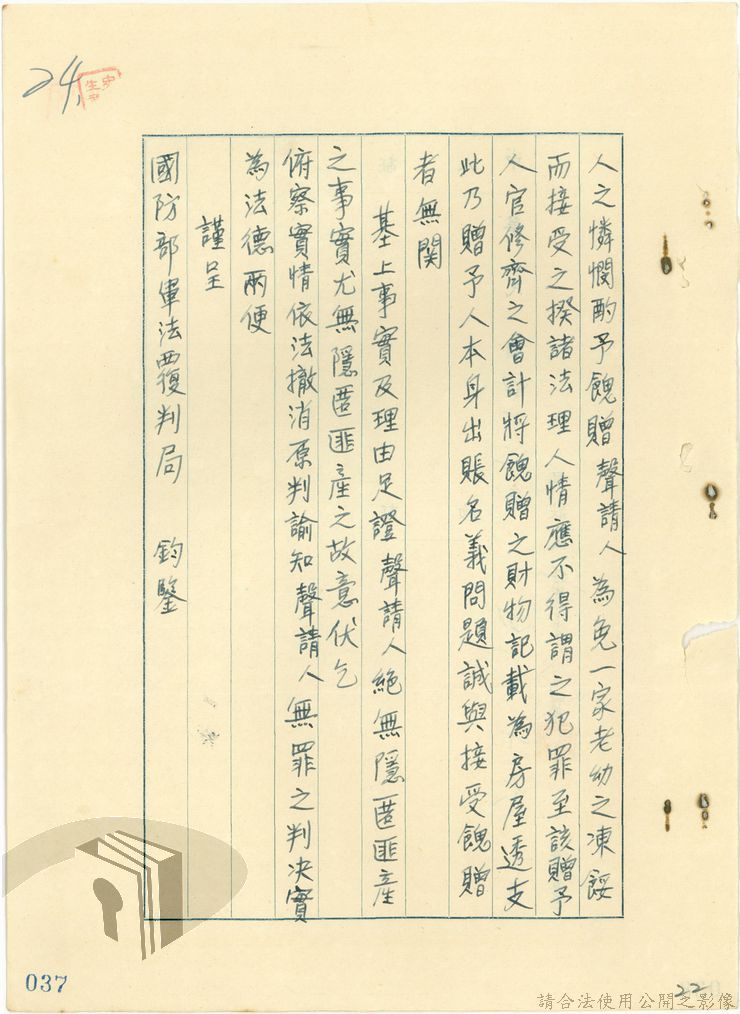 24
人之憐憫酌予餽贈聲請人為免一家老幼之凍餒
而接受之揆諸法理人情應不得謂之犯罪至該贈予
人官修齊之會計將餽贈之財物記載為房屋透支
此乃贈予人本身出賬名義問題誠與接受餽贈
者無関
基上事實及理由足證聲請人絶無隱匿匪產
之事實尤無隱匿匪產之故意伏乞
俯察實情依法撤消原判諭知聲請人無罪之判决實
為法德兩便
謹呈
國防部軍法覆判局 鈞鑒
037
22
請合法使用公開之影像